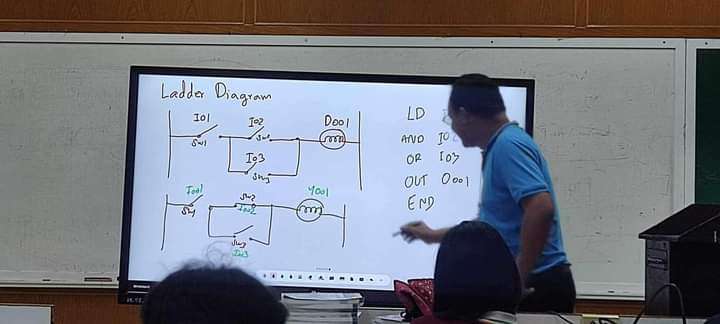 Ladder Diagram
I01 I02 D001
SW1 SW2
I03
SW3
I001 SW2 Y001
SW1 I002
SW3
LD
AND I0
OR I03
OUT O001
END